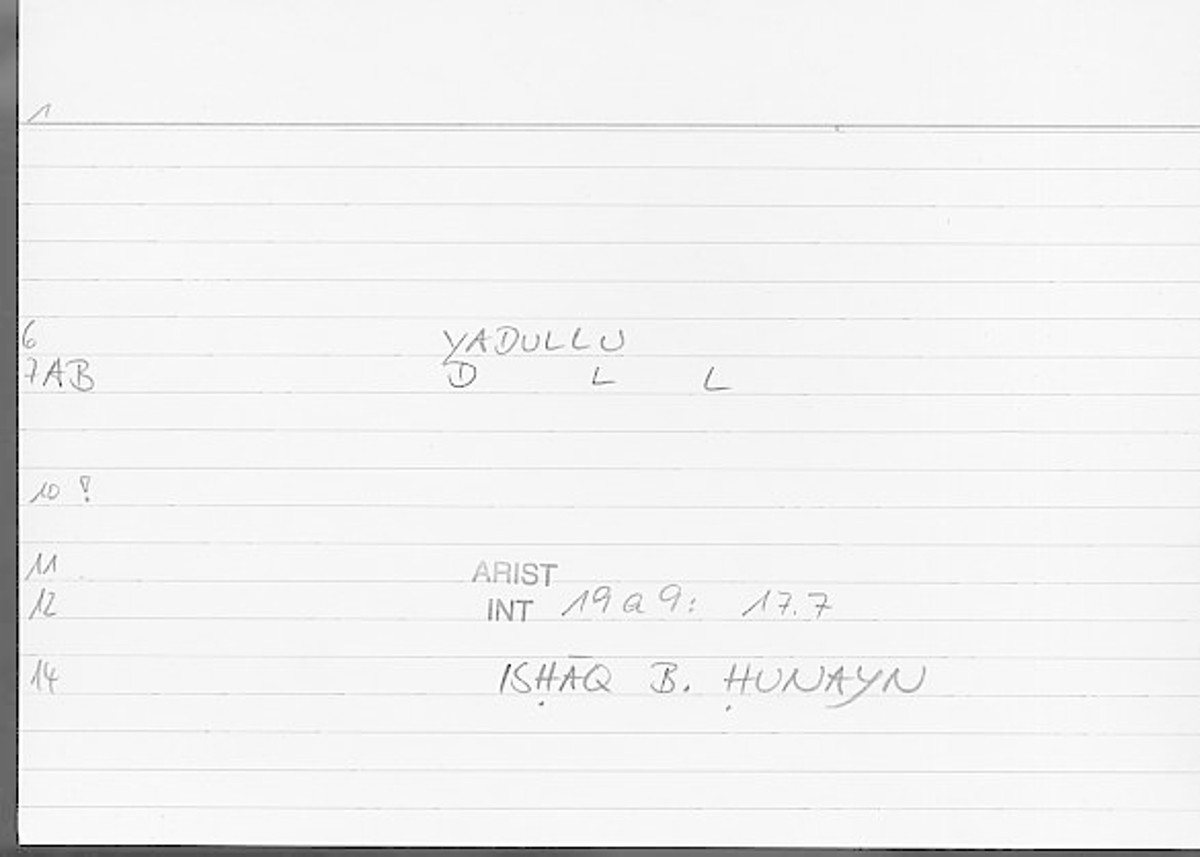 1
6 YADULLU
7AB D L L
10 !
11 ARIST
12 INT 19a9: 17.7
14 ISḤĀQ B. ḤUNAYN